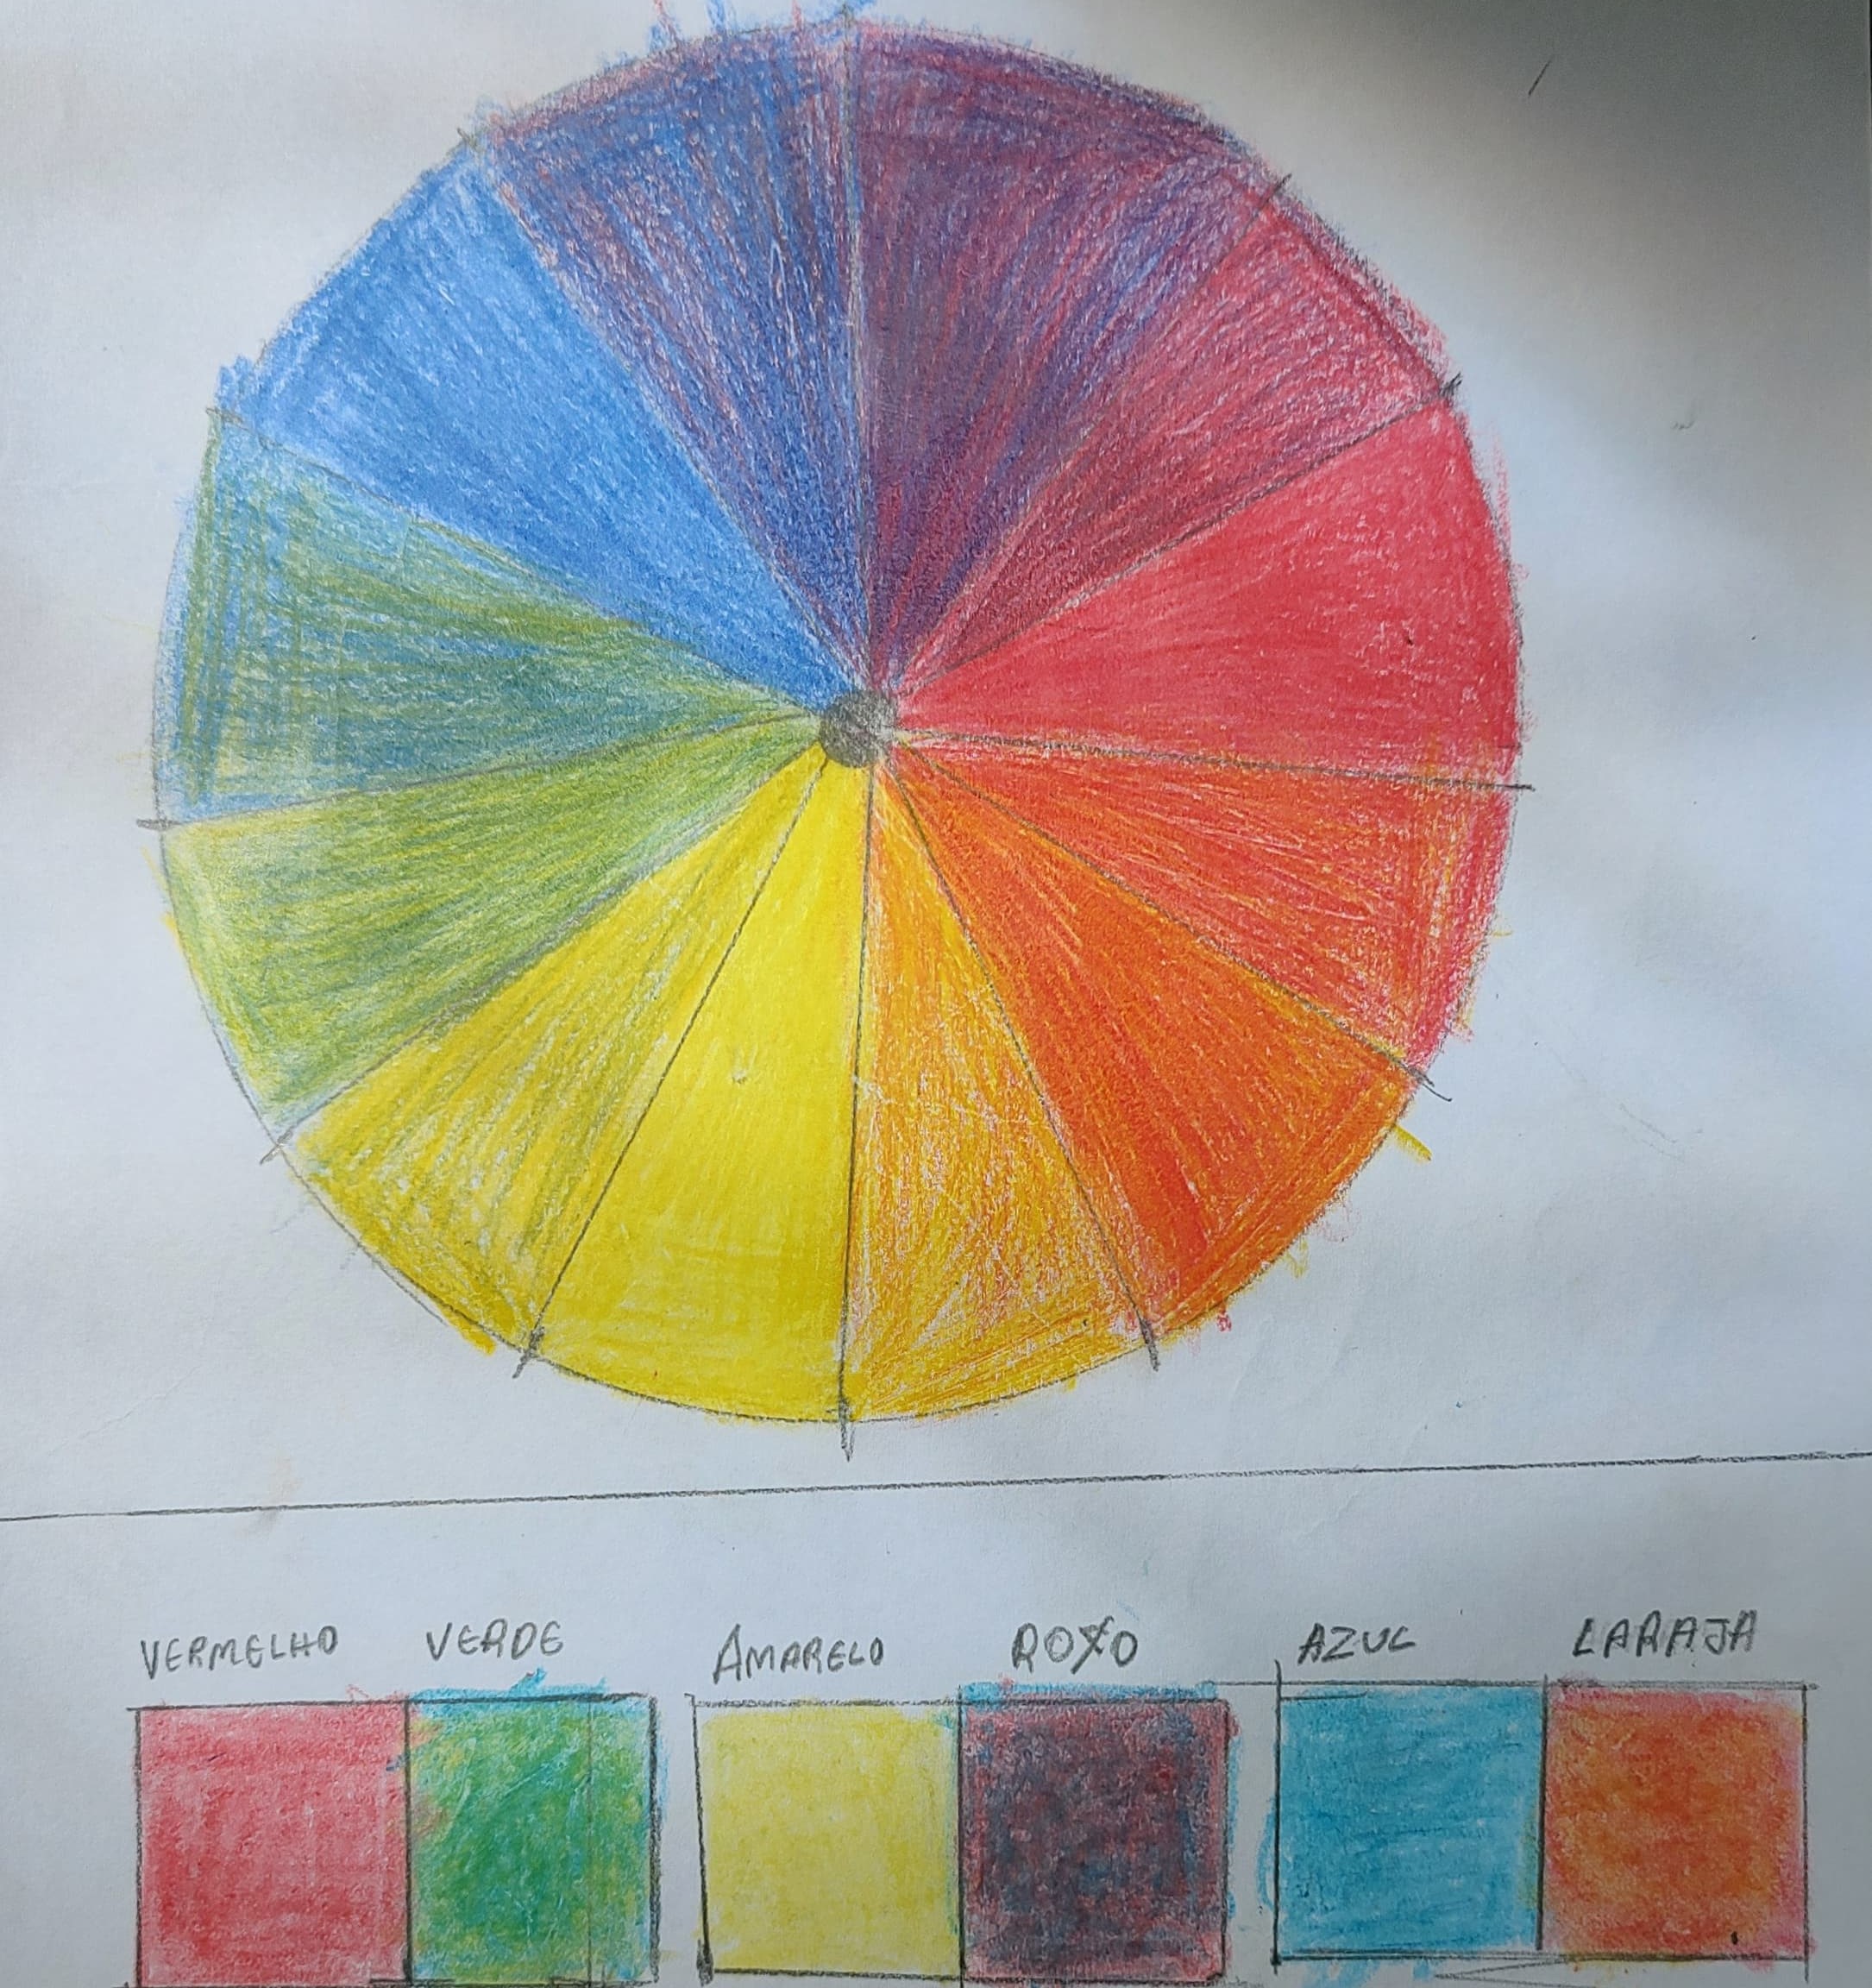 VERMELHO VERDE AMARELO ROXO AZUL LARAJA